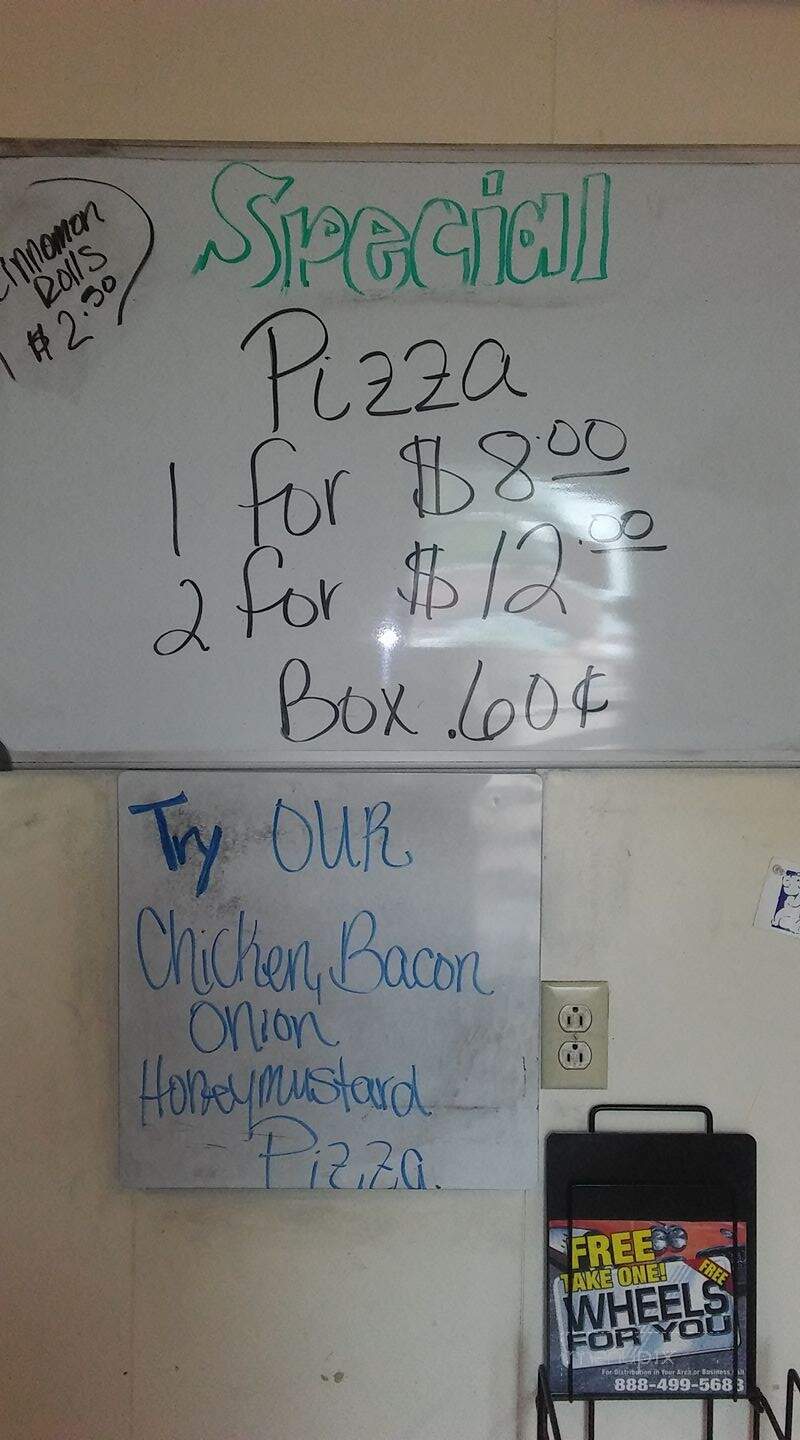 Special
Cinnamon
Rolls
$2.50
Pizza
1 for $8.00
2 for $12.00
Box .60¢
Try OUR
Chicken, Bacon
Onion
Honeymustard
Pizza.
FREE
TAKE ONE!
FREE
WHEELS
FOR YOU
For Distribution in Your Area or Business Call
888-499-5683